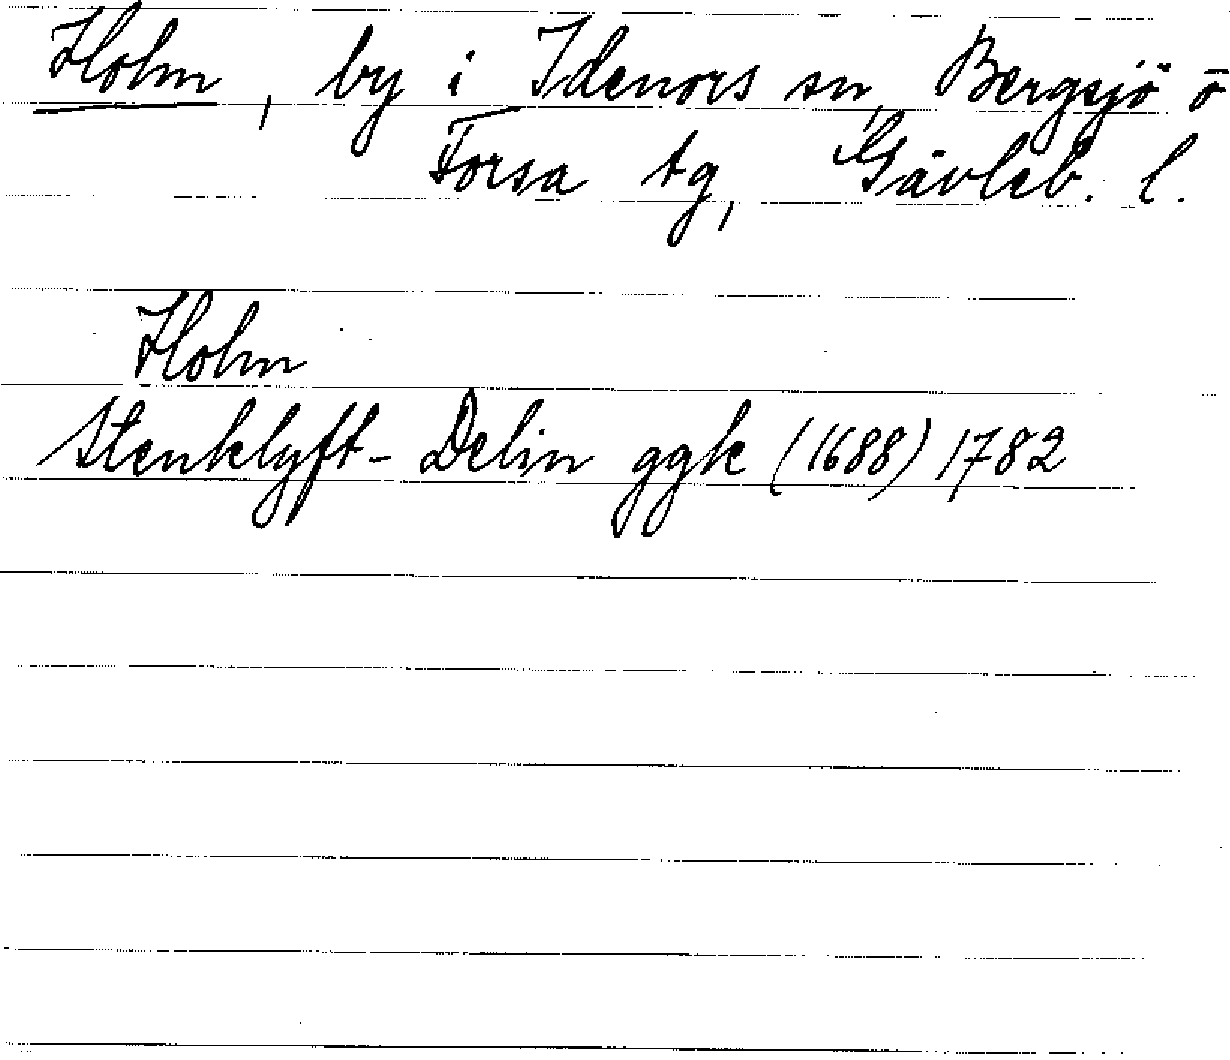 Holm, by i Idenors sn, Bergsjö o
Forsa tg, Gävleb. l.
Holm
Stenklyft - Delin ggk (1688) 1782